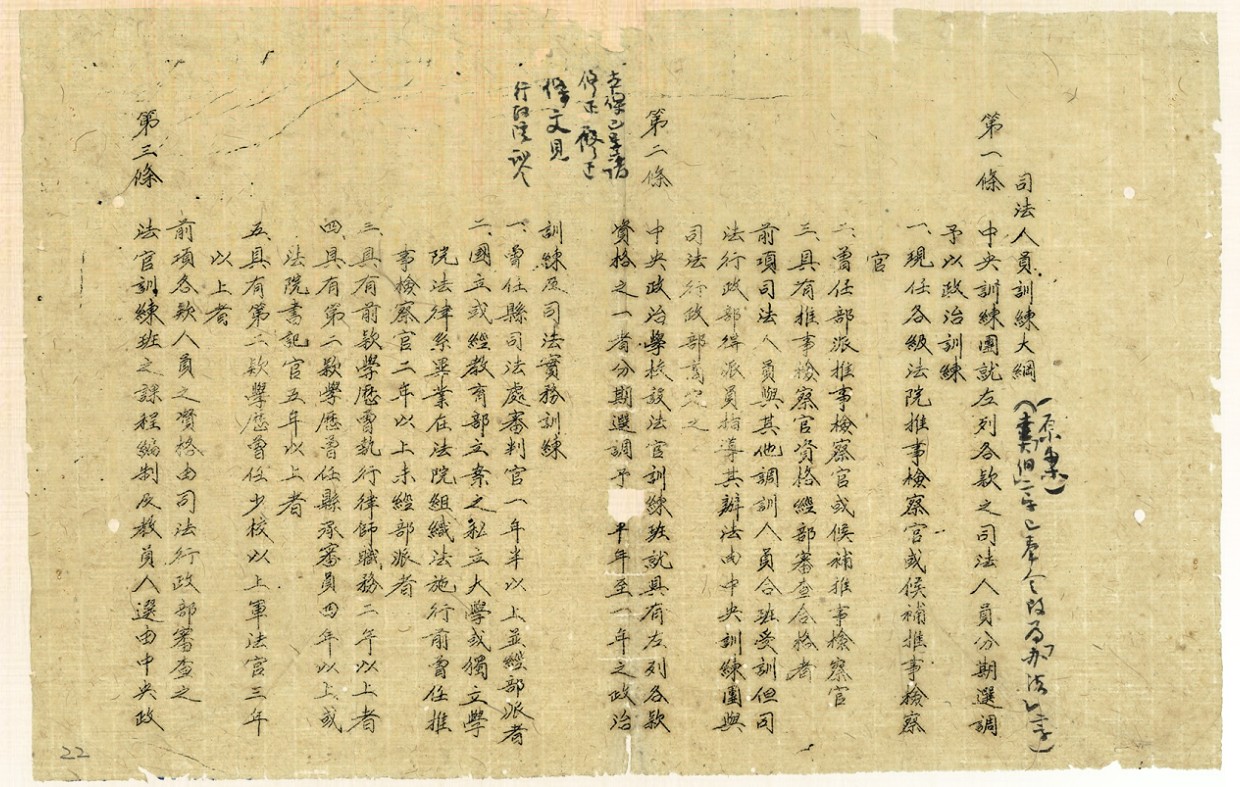 司法人員訓練大綱
(原案)
第一條
中央訓練團就左列各款之司法人員分期選調
予以政治訓練
一、現任各級法院推事檢察官或候補推事檢察
官
二、曾任部派推事檢察官或候補推事檢察官
三、具有推事檢察官資格經部審查合格者
前項司法人員與其他調訓人員合班受訓但司
法行政部得派員指導其辦法由中央訓練團與
司法行政部商定之
第二條
中央政治學校設法官訓練班就具有左列各款
資格之一者分期選調予
半年至一年之政治
修正
條文見
訓練及司法實務訓練
一、曾任縣司法處審判官一年半以上並經部派者
二、國立或經教育部立案之私立大學或獨立學
院法律系畢業在法院組織法施行前曾任推
事檢察官二年以上未經部派者
三、具有前款學歷曾執行律師職務二年以上者
四、具有第二款學歷曾任縣承審員四年以上或
法院書記官五年以上者
五、具有第二款學歷曾任少校以上軍法官三年
以上者
前項各款人員之資格由司法行政部審查之
第三條
法官訓練班之課程編制及教員人選由中央政
22